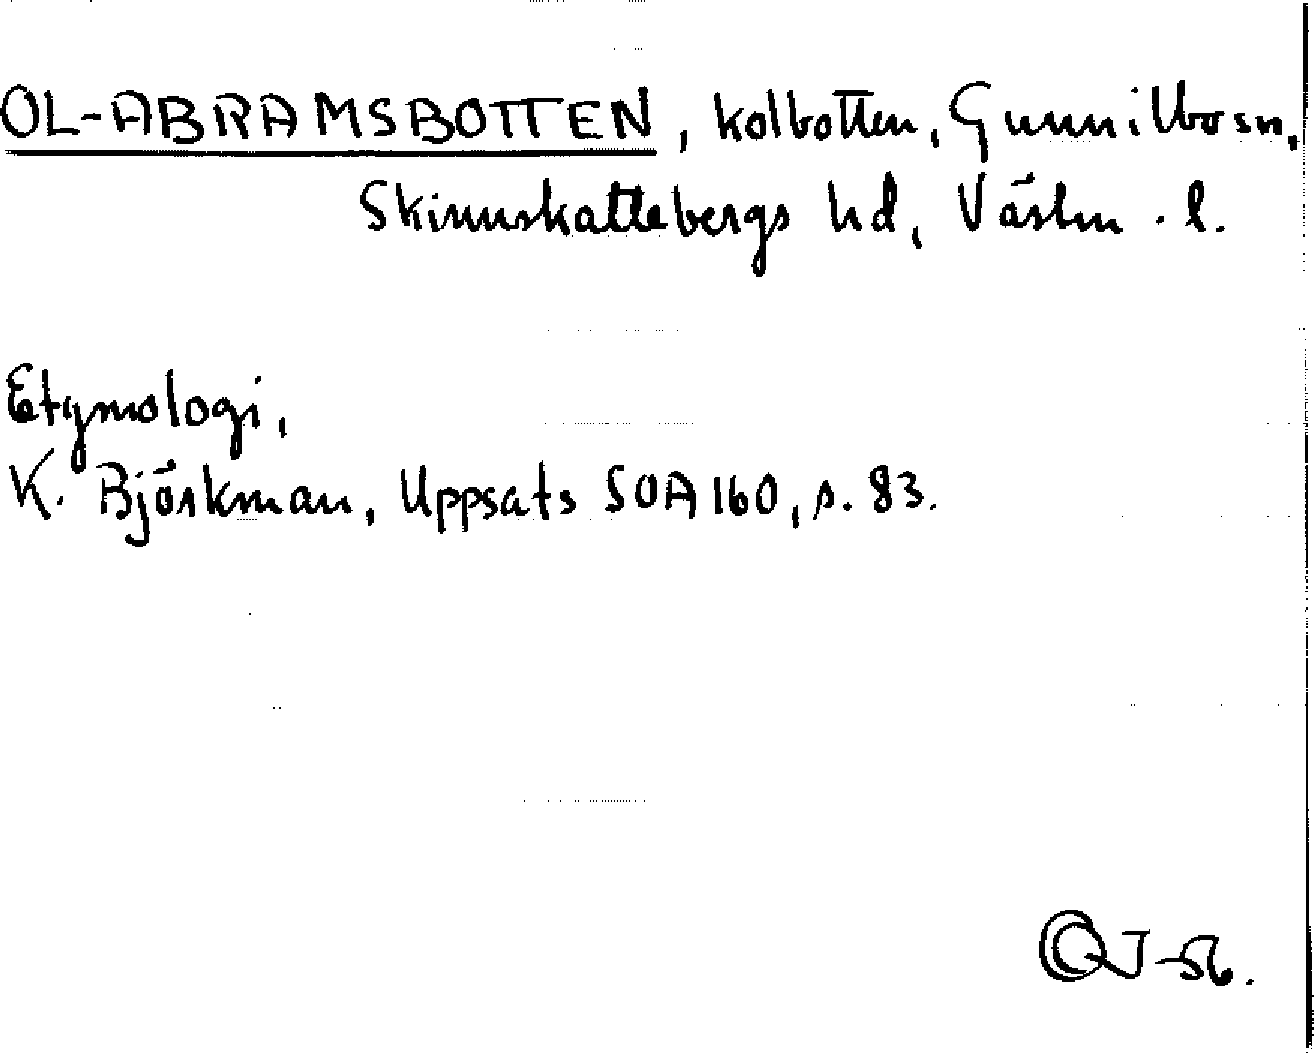 OL-ABRAMSBOTTEN, kolbotten, Gunnilbo sn,
Skinnskattebergs hd, Västm. l.
Etymologi,
K. Björkman, Uppsats SOA 160, s. 83.